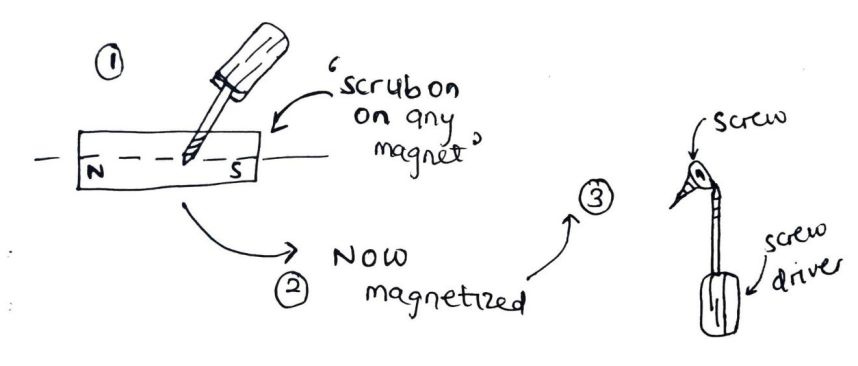 ①
'scrub on
on any
magnet'
N S
② NOW
magnetized
③
screw
screw
driver